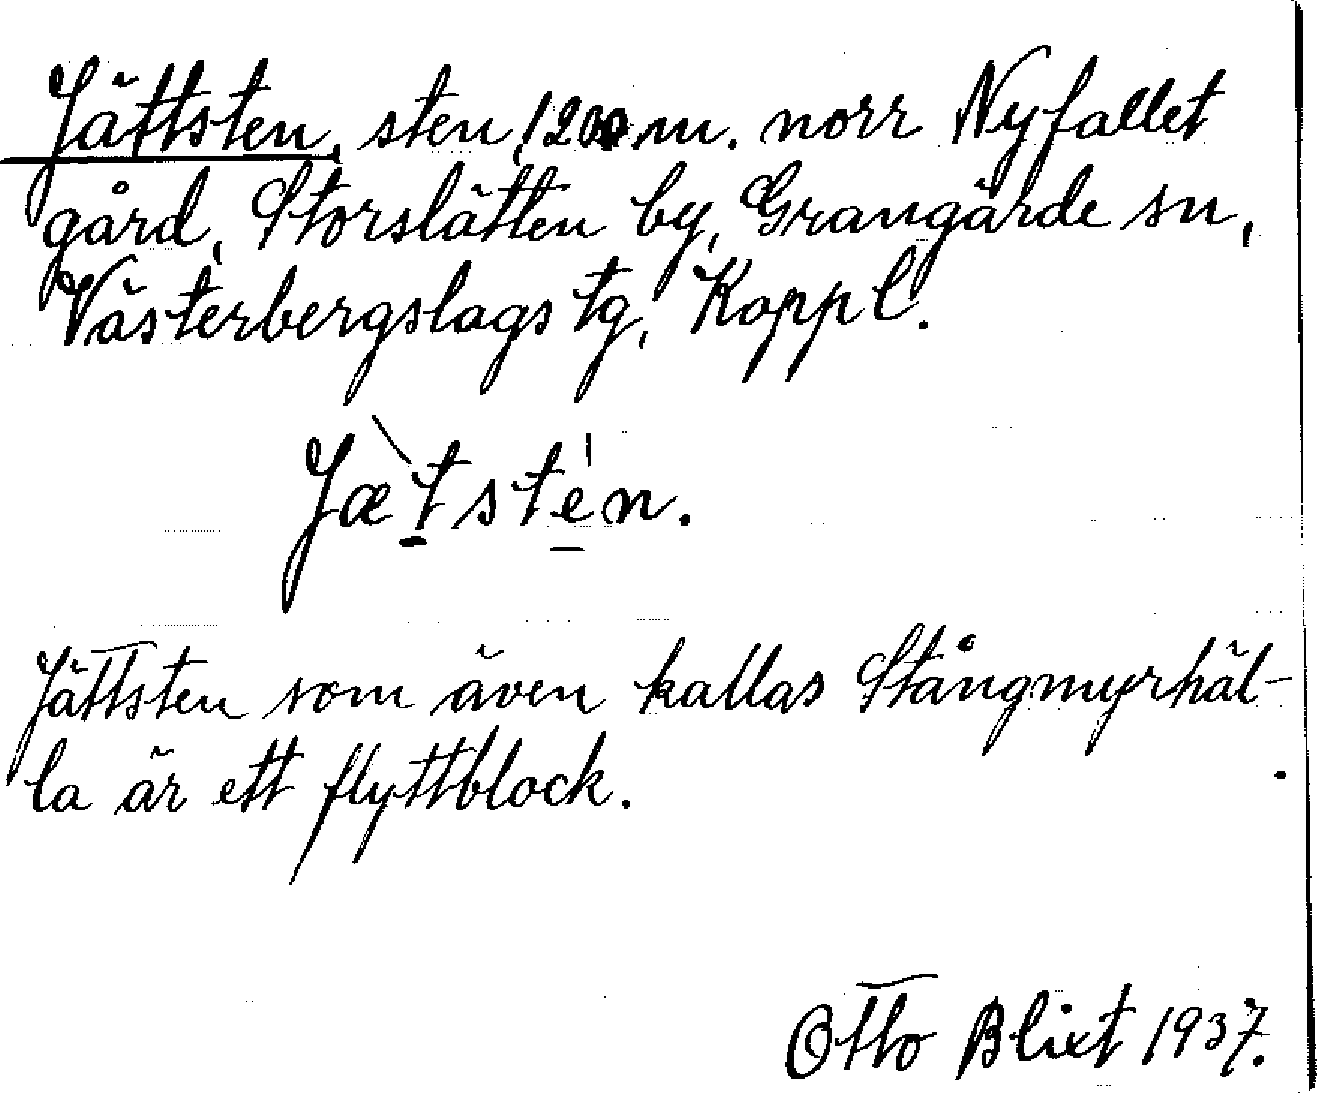 Jättsten, sten, 1200 m. norr Nyfallet
gård, Storslätten by, Grangärde sn,
Västerbergslags tg, Koppl.
Jæ̀tstén.
Jättsten som även kallas Stångmyrhäl-
la är ett flyttblock.
Otto Blixt 1937.